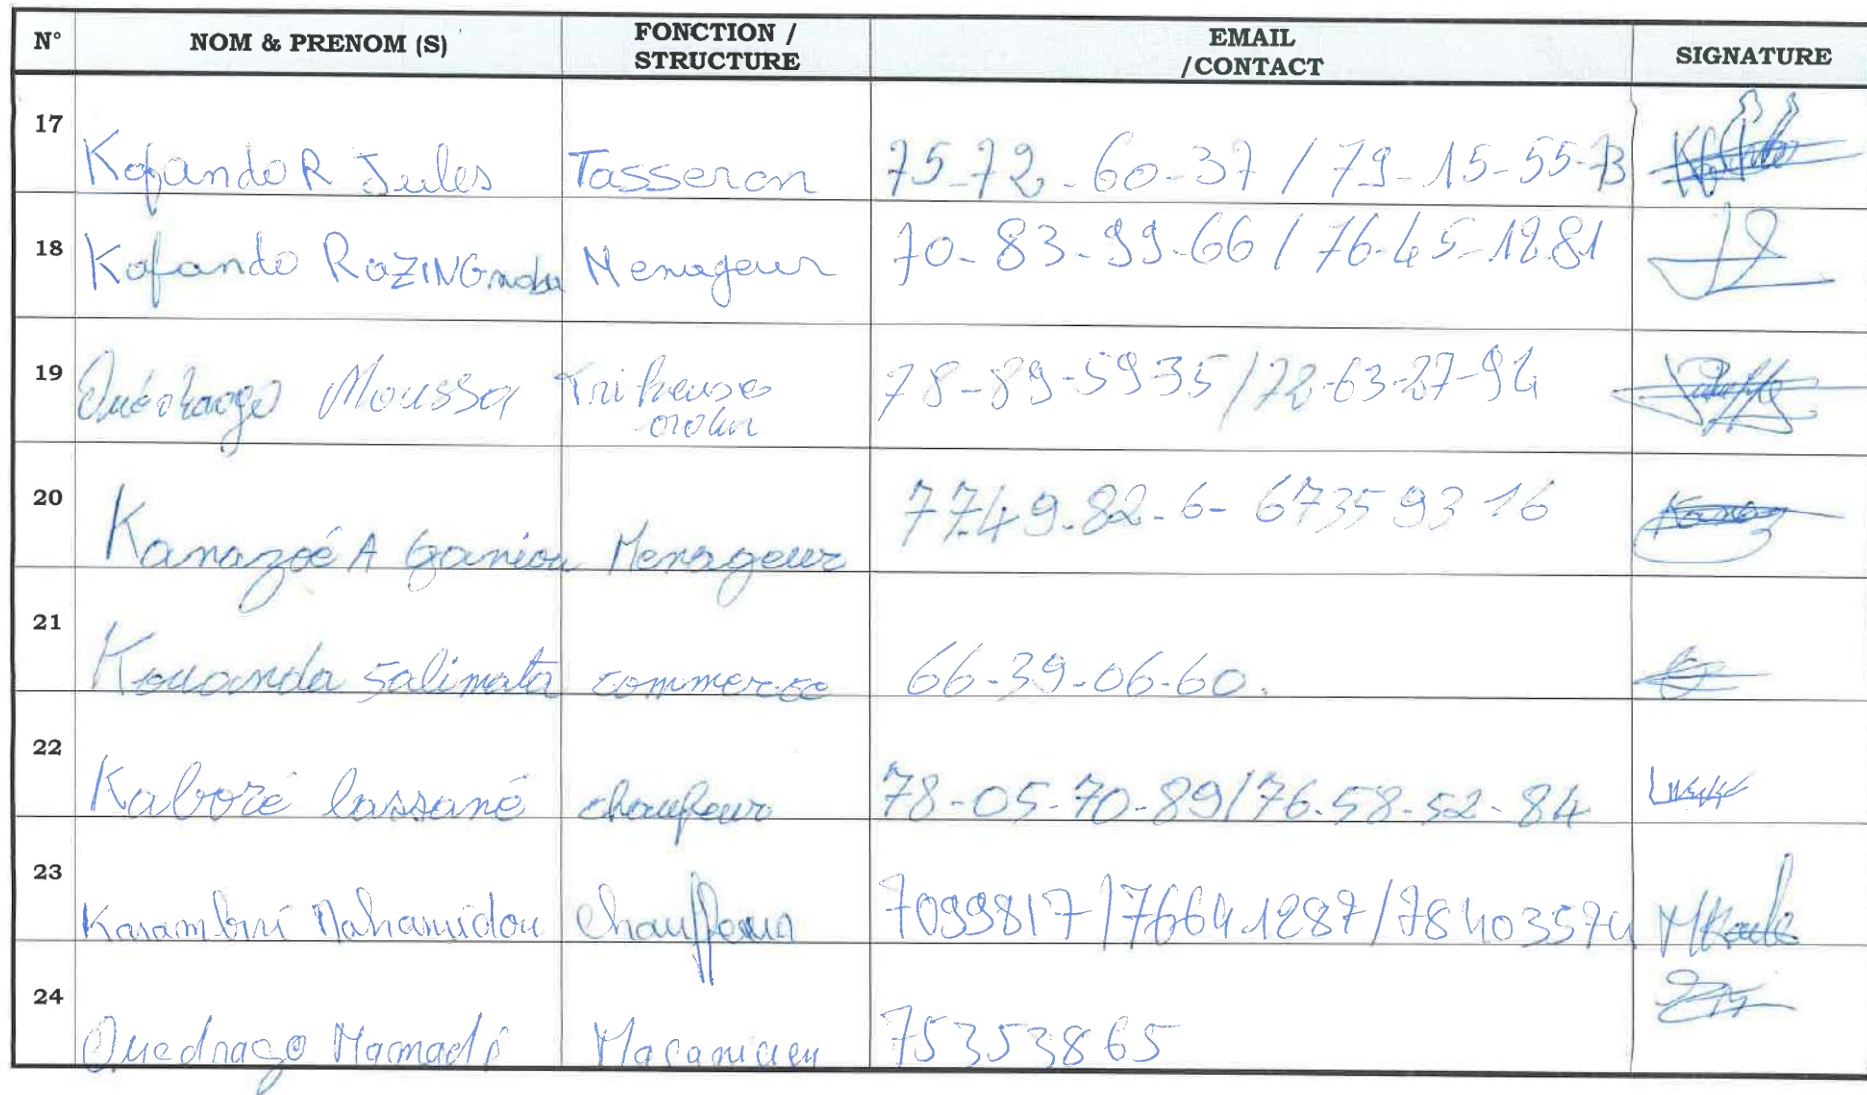 N° NOM & PRENOM (S) FONCTION / STRUCTURE EMAIL /CONTACT SIGNATURE
17 Kofando R Jules Tasseron 75-72-60-37 / 79-15-55-
18 Kofando RaZING Menageur 70-83-99-66 / 76-45-1281
19 Moussa 78-89-5935/72-63-27-94
20 Kanazoé A Menageur 7749-82-6- 67359316
21 Kouanda Salimata commerce 66-39-06-60.
22 Kaboré lassané chaufeur 78-05-70-89/76-58-52-84
23 Karambiri Mahamidou Chauffeur 7099817/76641287/78403574
24 Ouedrago Mamadi Macanicien 75353865